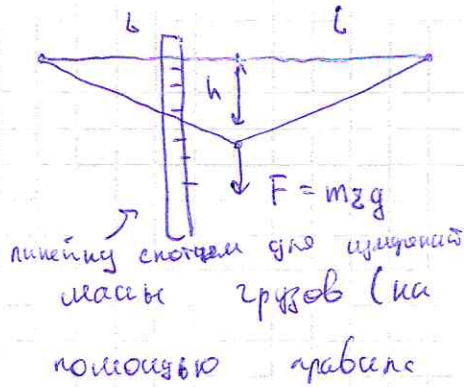 L L
h
F = m₂g
линейку скотчем для измерений
массы грузов (на
помощью правила